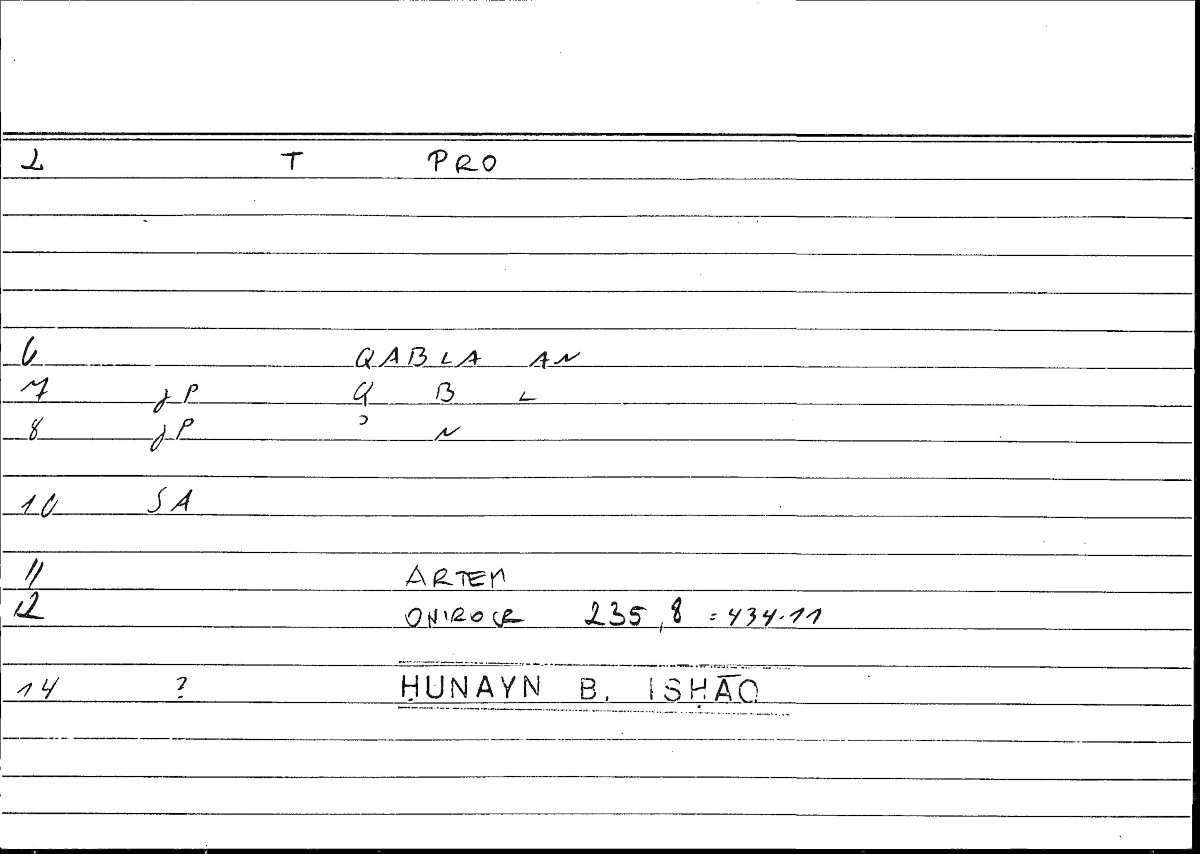 2 T PRO
6 QABLA AN
7 jP Q B L
8 jP ʾ N
10 SA
11 ARTEM
12 ONIROCR 235,8 = 434.11
14 ? ḤUNAYN B. ISḤĀQ